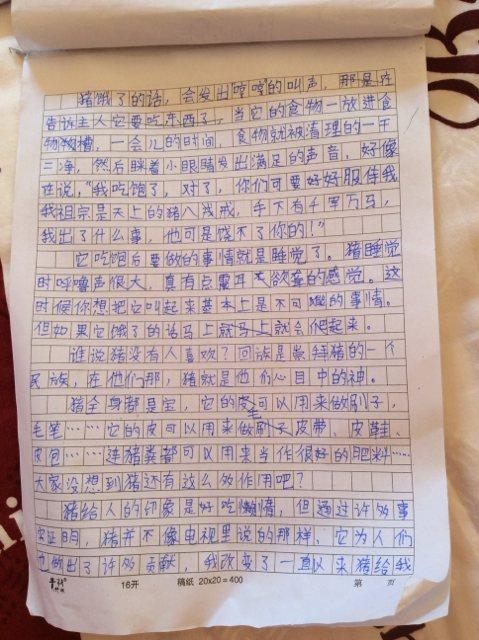 猪饿了的话，会发出哼哼的叫声，那是在
告诉主人它要吃东西了，当它的食物一放进食
物槽，一会儿的时间，食物就被清理的一干
二净，然后眯着小眼睛发出满足的声音，好像
在说，“我吃饱了，对了，你们可要好好服侍我
我祖宗是天上的猪八戒，手下有千军万马，
我出了什么事，他可是饶不了你的！”
它吃饱后要做的事情就是睡觉了。猪睡觉
时呼噜声很大，真有点震耳欲聋的感觉。这
时候你想把它叫起来基本上是不可能的事情。
但如果它饿了的话马上就会爬起来。
谁说猪没有人喜欢？回族是崇拜猪的一个
民族，在他们那，猪就是他们心目中的神。
猪全身都是宝，它的毛可以用来做刷子，
毛笔……它的皮可以用来做皮带、皮鞋、
皮包……连猪粪都可以用来当作很好的肥料……
大家没想到猪还有这么多作用吧？
猪给人的印象是好吃懒惰，但通过许多事
实证明，猪并不像电视里说的那样，它为人们
也做出了许多贡献，我改变了一直以来猪给我
16开 稿纸 20x20=400 第 页